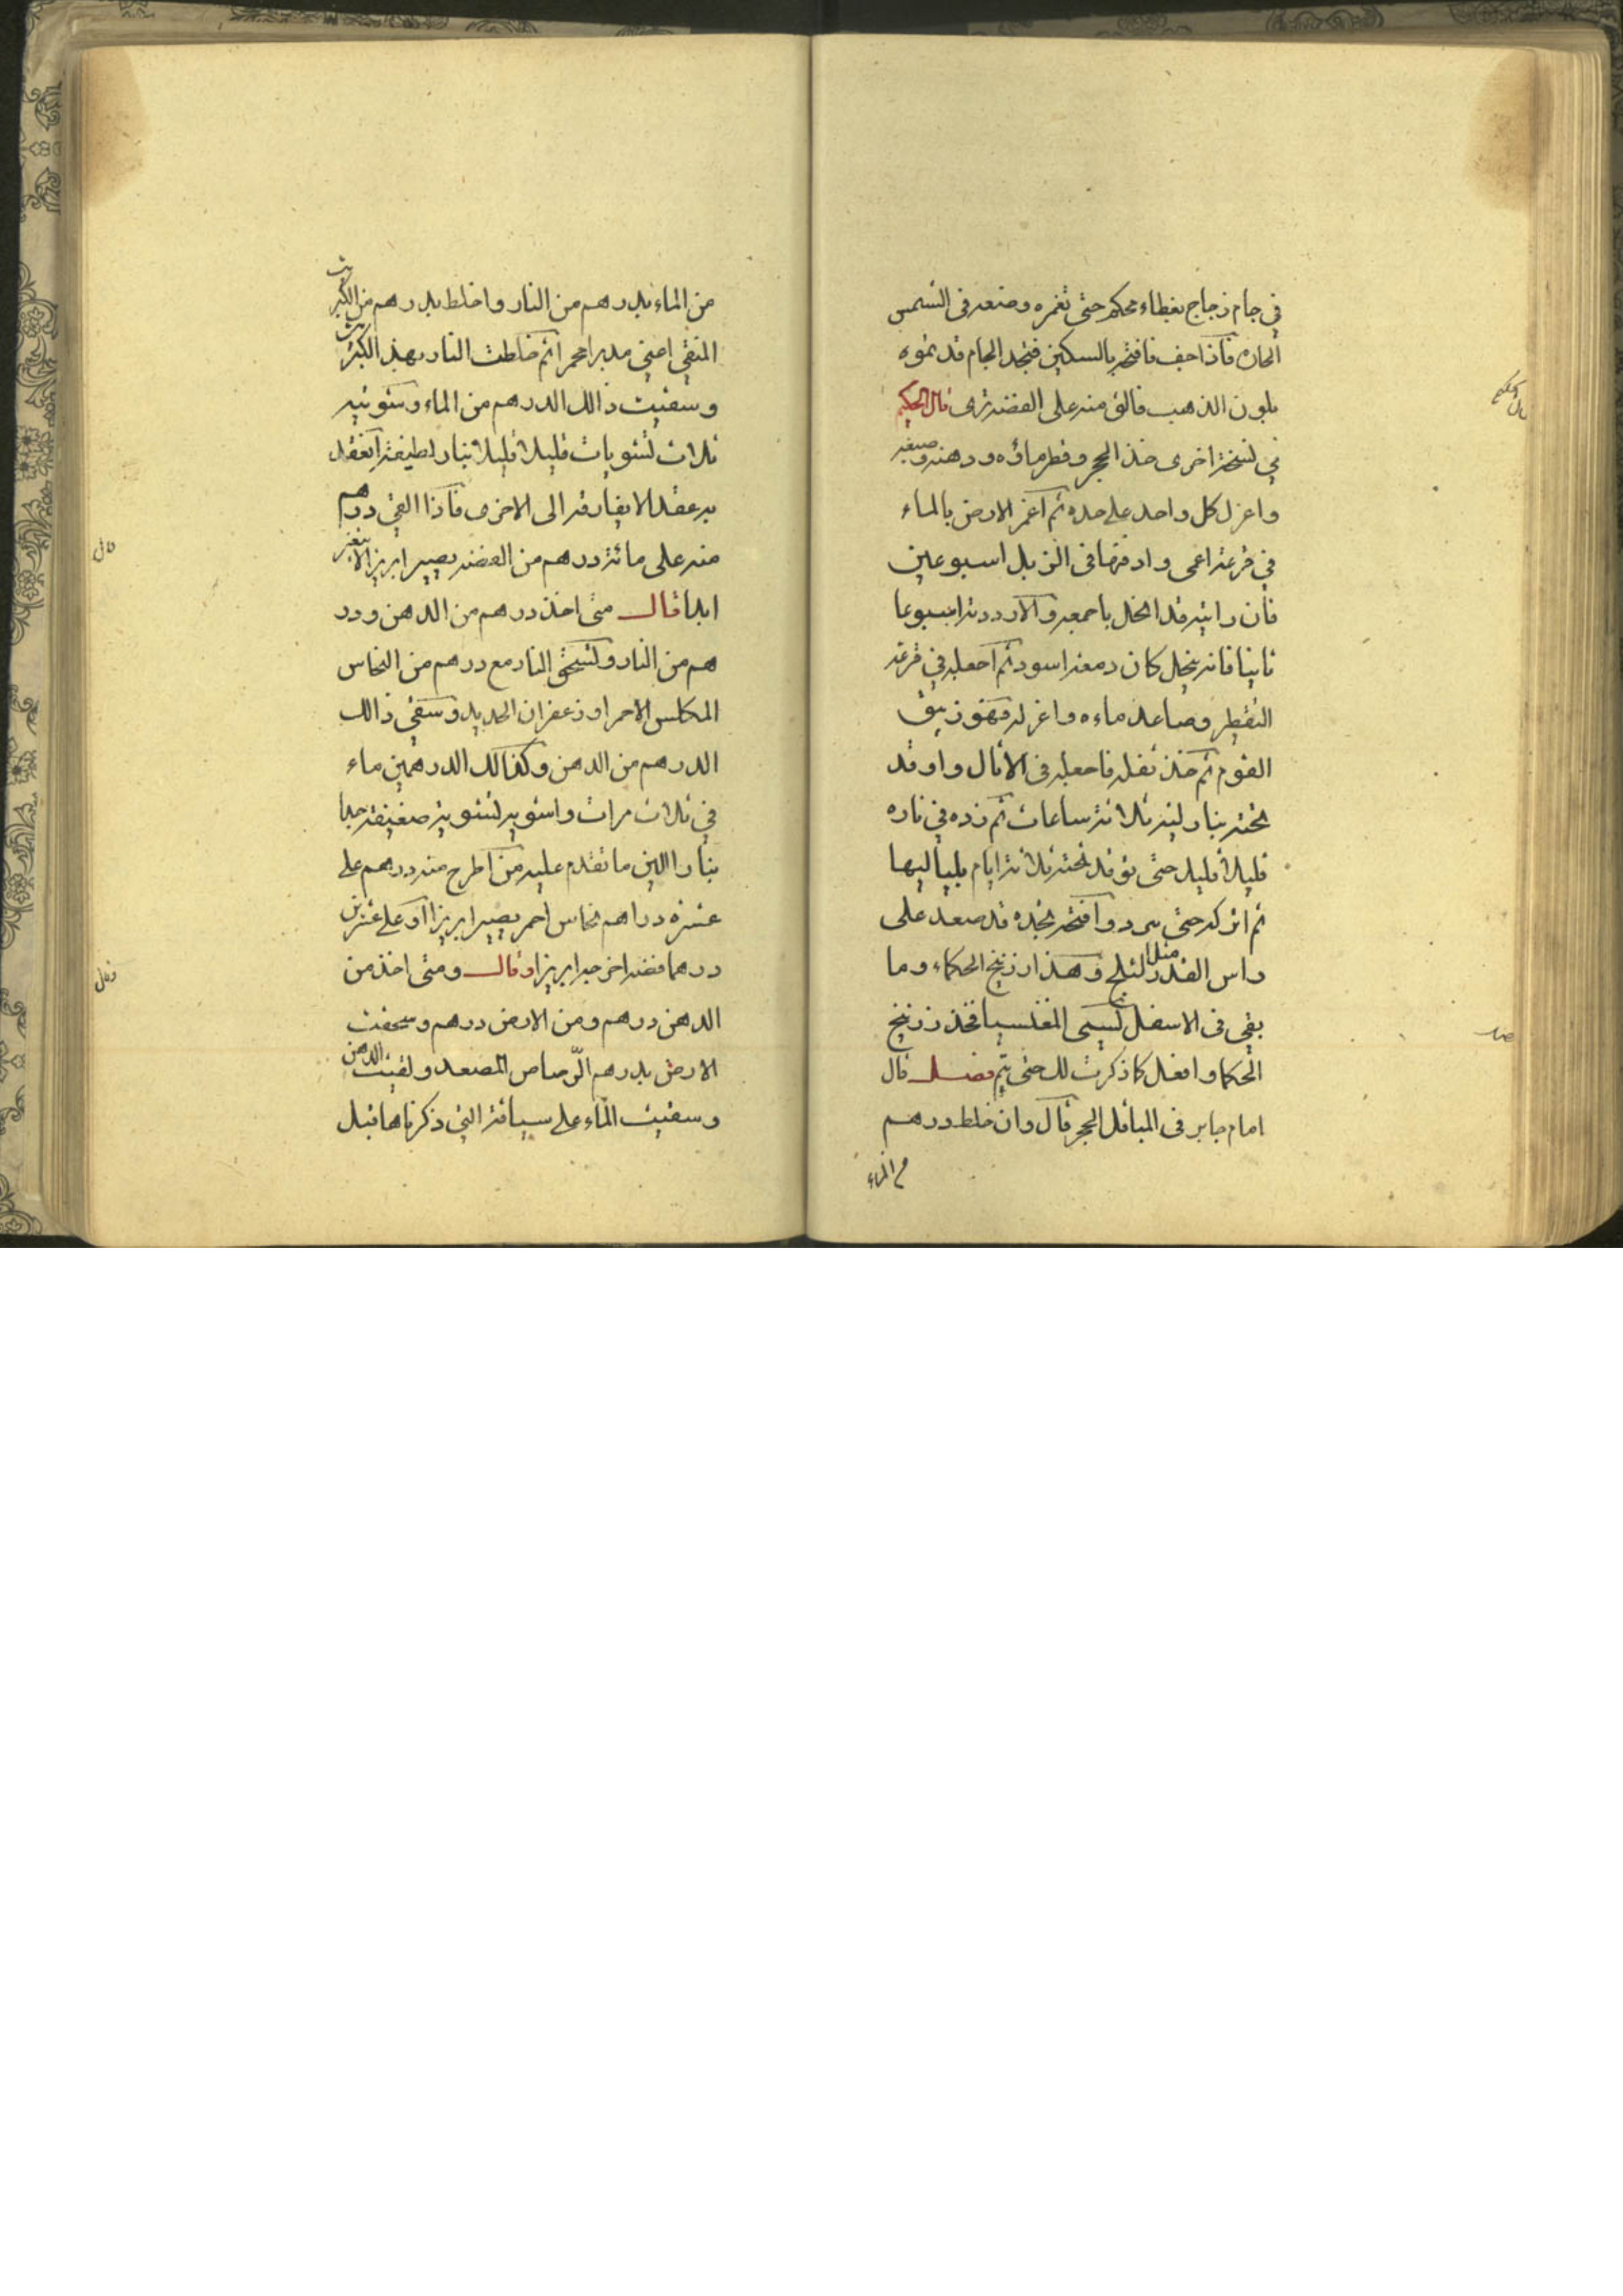 في جام زجاج بغطاء محكم حتى تغمره وضعه في الشمس
الحاره فاذا جف فافتحه بالسكين فتجد الجام قد تموه
بلون الذهب فالق منه على الفضة ترى قال الحكيم
في نسخة اخرى خذ الحجر وقطر ماؤه ودهنه وصبغه
واعزل كل واحد على حده ثم اغمر الارض بالماء
في قرعة اعمى وادفنها في الزبل اسبوعين
فان رايته قد انحل باجمعه والا رددته اسبوعا
ثانيا فانه ينحل كان دمعة اسود ثم اجعله في قرعة
التقطير وصاعد ماءه واعزله فهو زيبق
القوم ثم خذ ثفله فاجعله في الاثال واوقد
تحته بنار لينه ثلاثة ساعات ثم زده في ناره
قليلا قليلا حتى توقد تحته ثلاثة ايام بلياليها
ثم اتركه حتى يبرد وافتحه تجده قد صعد على
راس القدر مثل الثلج وهذا زرنيخ الحكماء وما
بقي في الاسفل تسمى المغنسيا فخذ زرنيخ
الحكما وافعل كما ذكرت لك حتى يتم فصل قال
امام جابر في المباقل الحجر قال وان خلط درهم
من الماء
من الماء بدرهم من النار واخلط بدرهم من الكبريت
المنقي اعني مدبرا محمرا ثم خلطت النار بهذ الكبريت
وسقيت ذالك الدرهم من الماء وشويته
ثلاث تشويات قليلا قليلا بنار لطيفة انعقد
به عقد لا يفارقه الى الاخرى فاذا القي درهم
منه على مائة درهم من الفضة يصير ابريزا لا يتغير
ابدا قال متى اخذ درهم من الدهن ودر
هم من النار وتسحق النار مع درهم من النحاس
المكلس الاحمر او زعفران الحديد وسقي ذالك
الدرهم من الدهن وكذالك الدرهمين ماء
في ثلاث مرات واشويه تشوية ضعيفة جدا
بنار االين ما تقدم عليه من اطرح منه درهم على
عشرة دراهم نحاس احمر يصير ابريزا او على عشرين
درهما فضه اخرجه ابريزا وقال ومتى اخذ من
الدهن درهم ومن الارض درهم وسحقت
الارض بدرهم الرصاص المصعد وسقيت الدهن
وسقيت الماء على سياقة التي ذكرناها قبل
قال الحكيم
فصل
قال
وقال